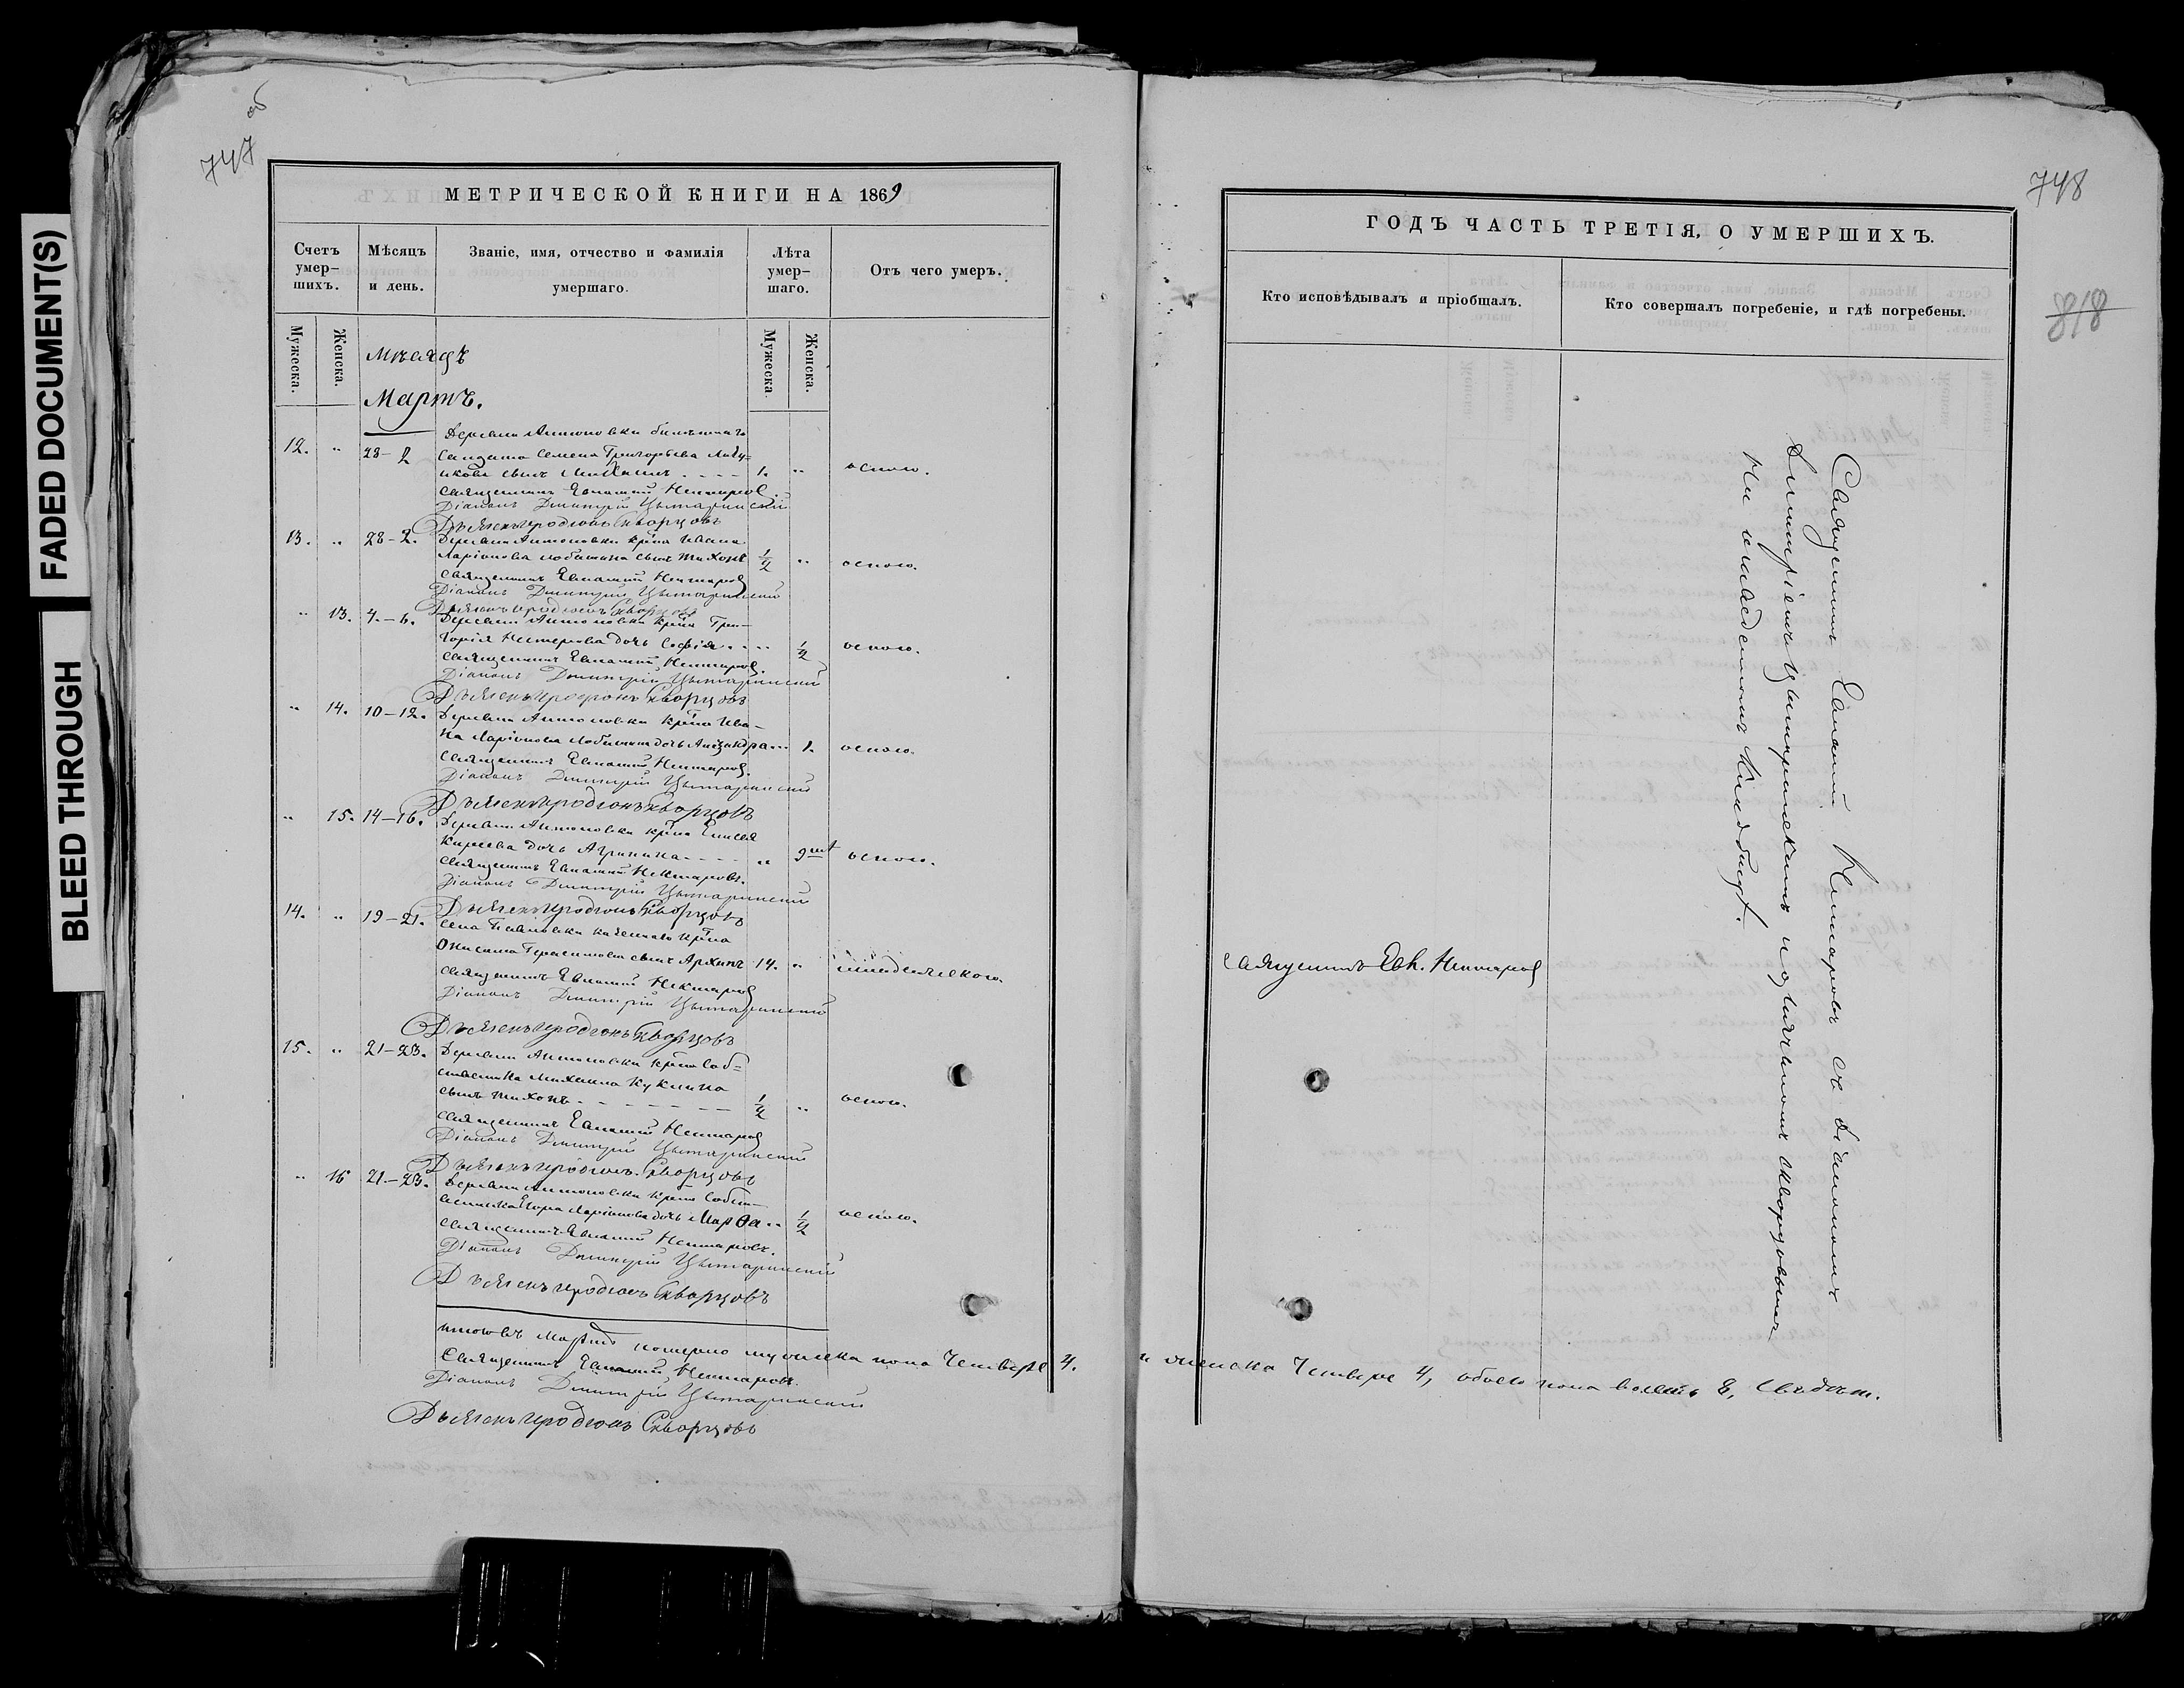 FADED DOCUMENT(S)
BLEED THROUGH
об
747
МЕТРИЧЕСКОЙ КНИГИ НА 1869
Счетъ умер-шихъ.
Мѣсяцъ и день.
Званіе, имя, отчество и фамилія умершаго.
Лѣта умер-шаго.
Отъ чего умеръ.
Мужеска.
Женска.
Мужеска
Женска.
Мѣсяцъ
Мартъ.
Деревни Антоновки
12. „ 28-2 Солдата Семена Григорьева
сынъ Михаилъ - - - 1. „ оспою.
Священникъ Евпатій Нектаровъ.
Діаконъ Димитрій Цытаринскій
Дьячекъ Иродіонъ Скворцовъ
13. „ 28-2. Деревни Антоновки кр̃на Ивана
Ларіонова Лобынина сынъ Тихонъ 1/2 „ оспою.
Священникъ Евпатій Нектаровъ
Діаконъ Димитрій Цытаринскій
Дьячекъ Иродіонъ Скворцовъ
„ 13. 4.-6. Деревни Антоновки кр̃на Гри-
горія Нестерова дочь Софія . . . 1/2 оспою.
Священникъ Евпатій Нектаровъ.
Діаконъ Димитрій Цытаринскій
Дьячекъ Иродіонъ Скворцовъ
„ 14. 10-12. Деревни Антоновки кр̃на Ива-
на Ларіонова Лобынина дочь Александра „ 1. оспою.
Священникъ Евпатій Нектаровъ.
Діаконъ Димитрій Цытаринскій
Дьячекъ Иродіонъ Скворцовъ
„ 15. 14-16. Деревни Антоновки кр̃на Елисея
Киреева дочь Агрипина - - - - „ 9 мѣс оспою.
Священникъ Евпатій Нектаровъ.
Діаконъ Димитрій Цытаринскій
Дьячекъ Иродіонъ Скворцовъ
14. „ 19-21. Села кр̃на
Герасимова сынъ Архипъ 14. „
Священникъ Евпатій Нектаровъ
Діаконъ Димитрій Цытаринскій
Дьячекъ Иродіонъ Скворцовъ
15. „ 21-23. Деревни Антоновки кр̃на Соб-
ственника Михаила Куклина
сынъ Тихонъ - - - - - - - 1/2 „ оспою.
Священникъ Евпатій Нектаровъ
Діаконъ Димитрій Цытаринскій
Дьячекъ Иродіонъ Скворцовъ
„ 16 21-23. Деревни Антоновки кр̃на Собст-
венника Егора Ларіонова дочь Марѳа „ 1/2 оспою.
Священникъ Евпатій Нектаровъ.
Діаконъ Димитрій Цытаринскій
Дьячекъ Иродіонъ Скворцовъ
Итого въ Мартѣ померло мужеска пола Четверо 4. и женска Четверо 4, обоего пола восемь 8, Свѣдѣт.
Священникъ Евпатій Нектаровъ.
Діаконъ Димитрій Цытаринскій
Дьячекъ Иродіонъ Скворцовъ
748
818
ГОДЪ ЧАСТЬ ТРЕТІЯ, О УМЕРШИХЪ.
Кто исповѣдывалъ и пріобщалъ.
Кто совершалъ погребеніе, и гдѣ погребены.
Священникъ Евп. Нектаровъ
Священникъ Евпатій Нектаровъ съ діакономъ
Димитріемъ Цытаринскимъ и дьячкомъ Скворцовымъ
На кладбищѣ.